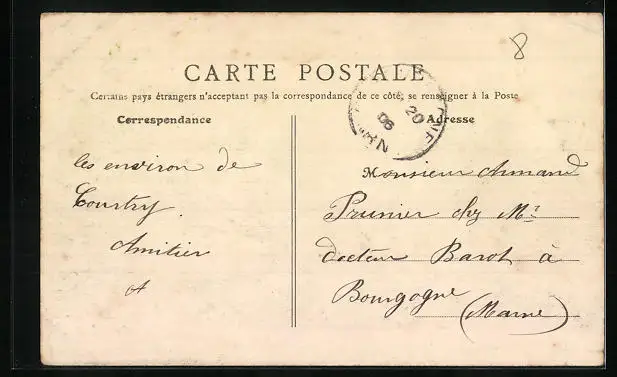 8
CARTE POSTALE
Certains pays étrangers n'acceptant pas la correspondance de ce côté, se renseigner à la Poste
Correspondance
Adresse
20
06
les environ de
Courtry
Amitier
A
Monsieur Armand
Prunier chez Mr
docteur Barot à
Bourgogne
(Marne)